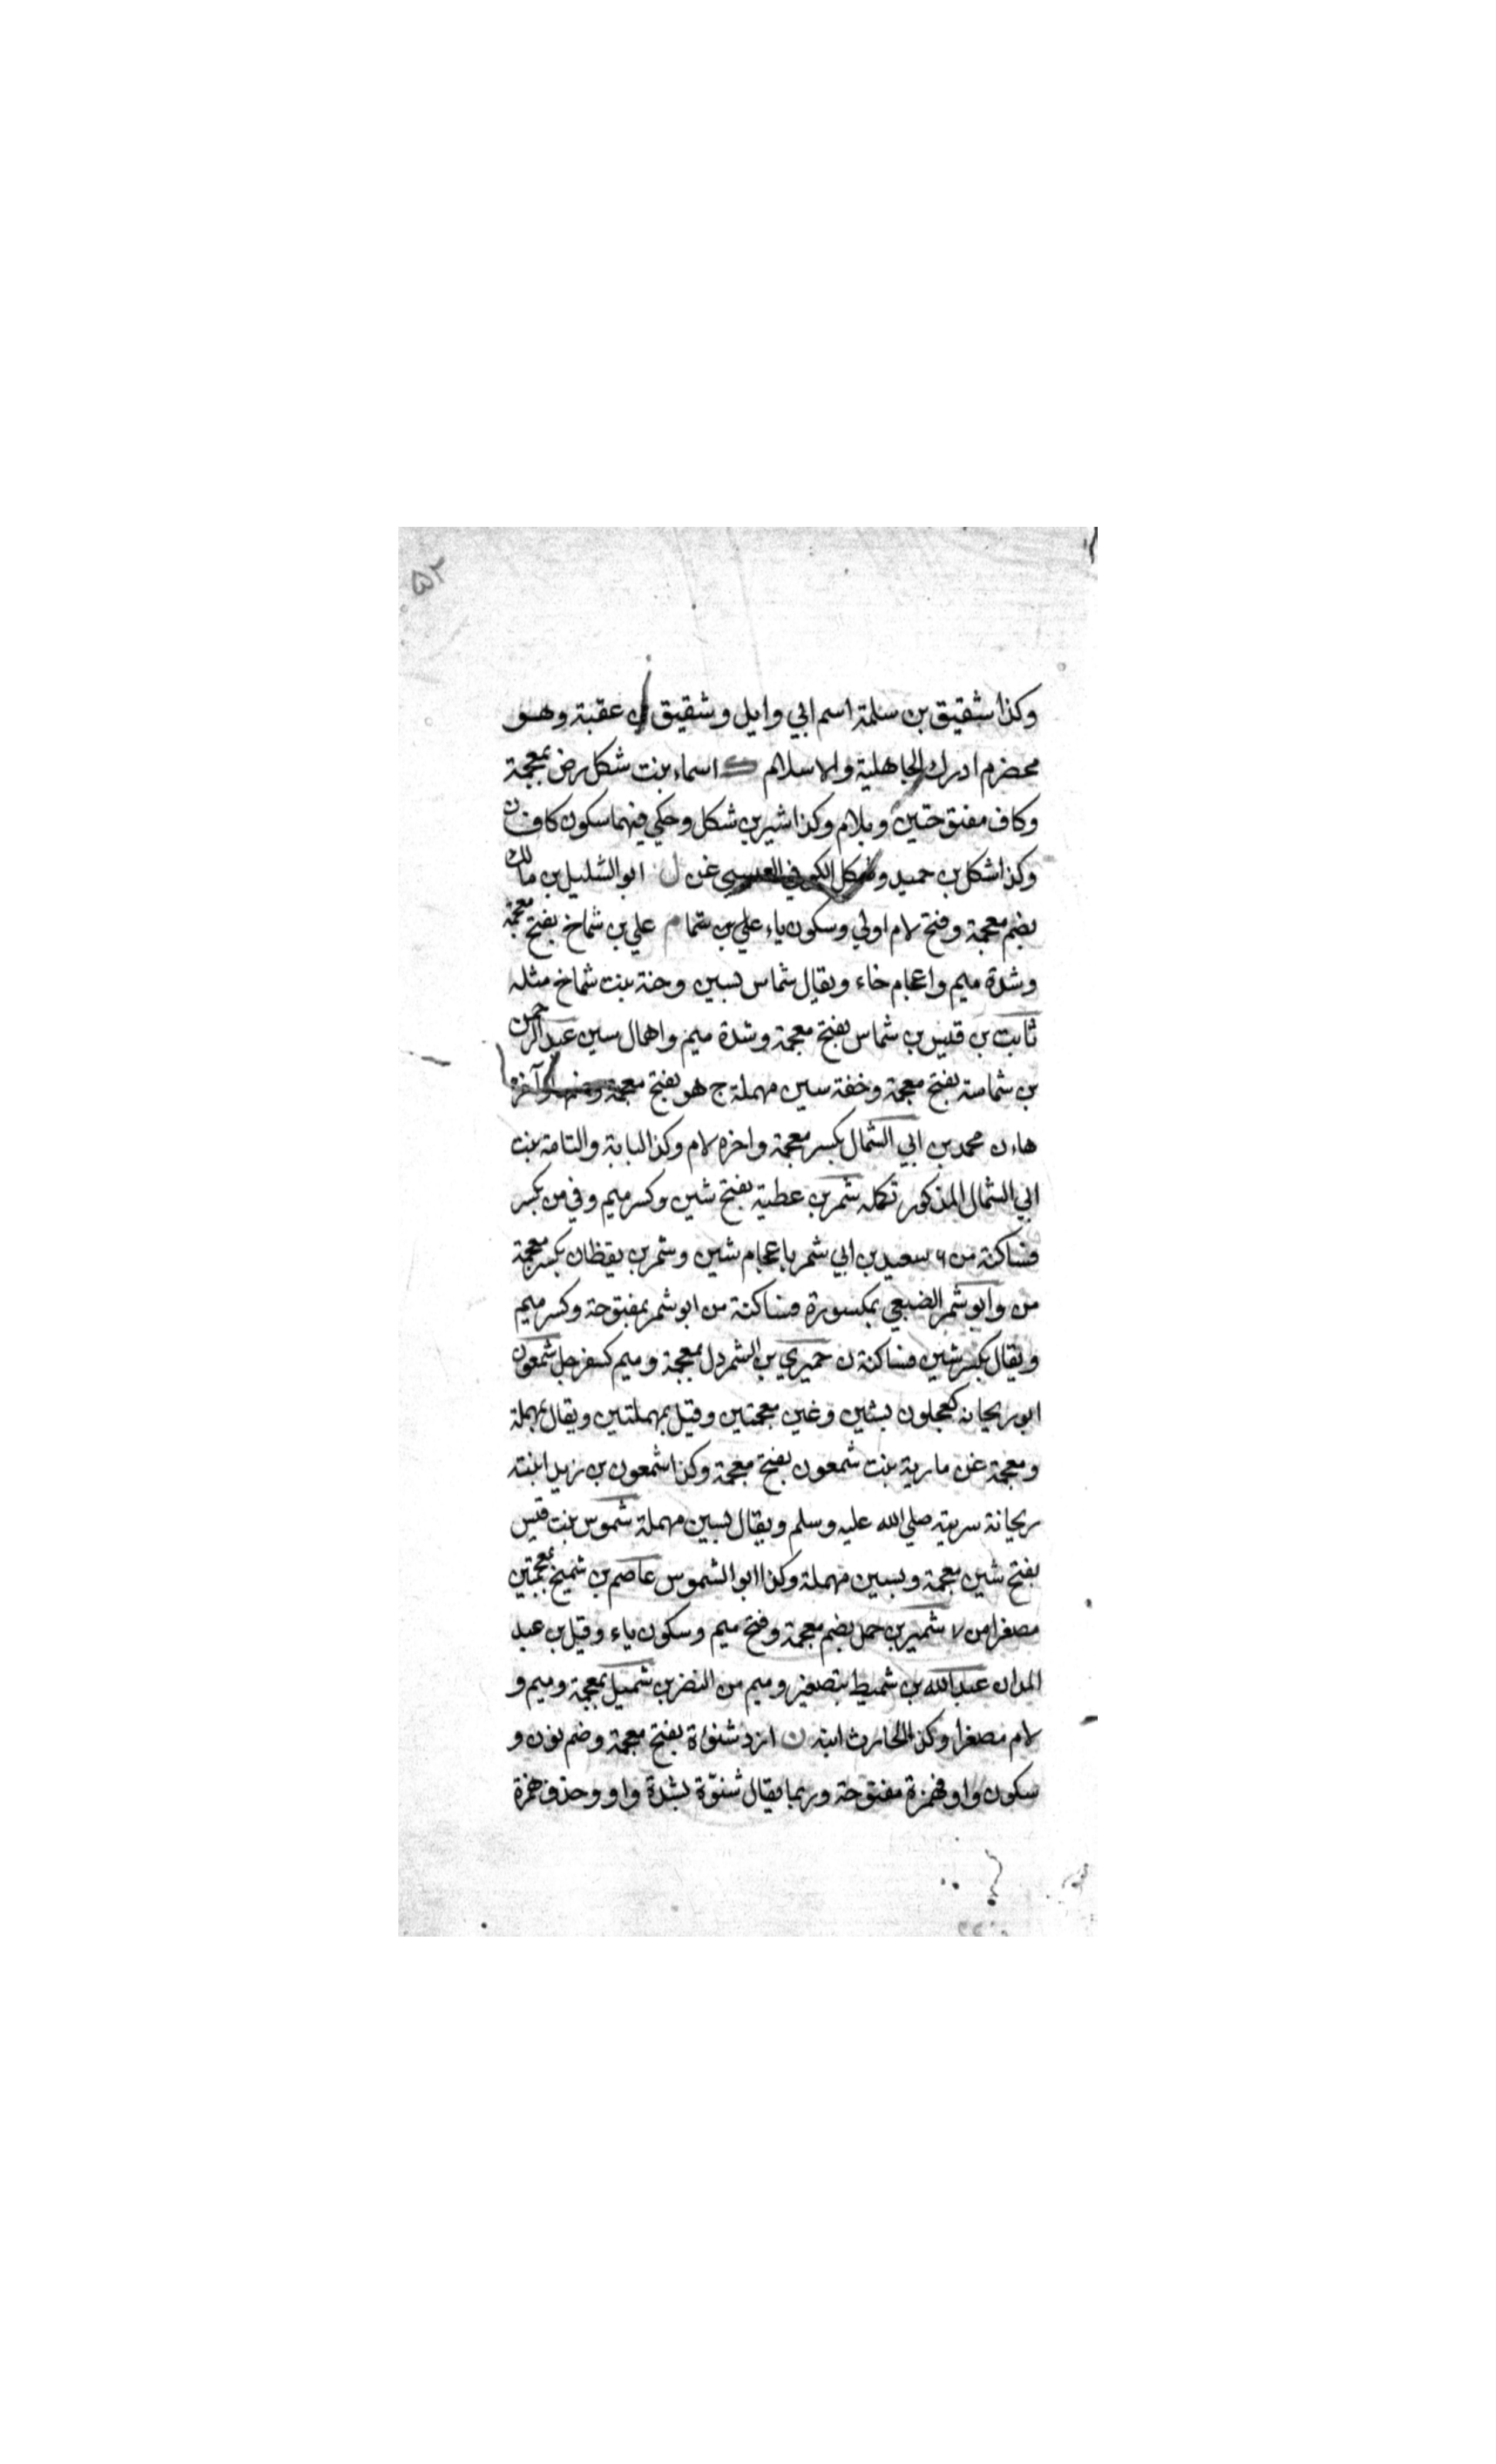 ٥٢
وكذا شقيق بن سلمة اسم ابي وايل وشقيق بن عقبة وهو
مخضرم ادرك الجاهلية والاسلام ك اسماء بنت شكل رض بمعجمة
وكاف مفتوحتين وبلام وكذا شير بن شكل وحكي فيهما سكون كاف ن
وكذا شكل بن حميد غن ل ابو الشليل بن مالك
بضم معجمة وفتح لام اولي وسكون ياء علي بن شمام علي بن شماخ بفتح معجمة
وشدة ميم واعجام خاء ويقال شماس بسين وحنة بنت شماخ مثله
ثابت بن قيس بن شماس بفتح معجمة وشدة ميم واهمال سين عبد الرحمن
بن شماسة بفتح معجمة وخفة سين مهملة ج هو بفتح معجمة وآخره
هاء ن محمد بن ابي الشمال بكسر معجمة واخره لام وكذا لبابة والتامة بنت
ابي الشمال المذكور تكمله شمر بن عطية بفتح شين وكسر ميم وفي من بكسر
فساكنة من ٦ سعيد بن ابي شمر باعجام شين وشمر بن يقظان بكسر معجمة
من وابو شمر الضبعي بمكسورة فساكنة من ابو شمر بمفتوحة وكسر ميم
ويقال بكسر شين فساكنة ن حميري بن الشمردل بمعجمة وميم كسفرجل شمعون
ابو ريحانة كعجلون بشين وغين معجمتين وقيل بمهملتين ويقال بمهملة
ومعجمة غن مارية بنت شمعون بفتح معجمة وكذا شمعون بن زيد ابنته
ريحانة سريته صلي الله عليه وسلم ويقال بسين مهملة شموس بنت قيس
بفتح شين معجمة وبسين مهملة وكذا ابو الشموس عاصم بن شميخ بمعجمتين
مصغرا من لا شمير بن حمل بضم معجمة وفتح ميم وسكون ياء وقيل بن عبد
المدان عبد الله بن شميط بتصغير وميم من النضر بن شميل بمعجمة وميم و
لام مصغرا وكذا الحارث ابنه ن ازد شنوءة بفتح معجمة وضم نون و
سكون واو فهمزة مفتوحة وربما يقال شنوّة بشدة واو وحذف همزة